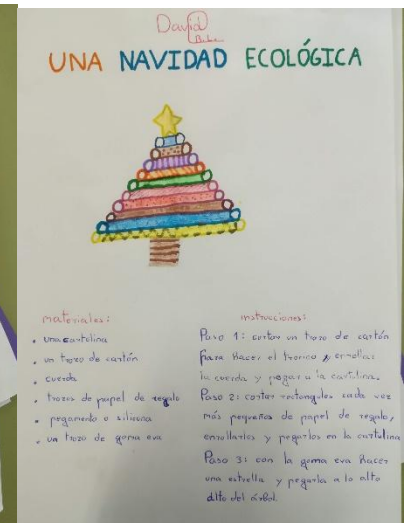 David
UNA NAVIDAD ECOLÓGICA
materiales:
• una cartolina
• un trozo de cartón
• cuerda
• trozos de papel de regalo
• pegamento o silicona
• un trozo de goma eva
instrucciones:
Paso 1: cortar un trozo de cartón
para hacer el tronco y enrollar
la cuerda y pegar a la cartulina.
Paso 2: cortar rectangulos cada vez
más pequeños de papel de regalo,
enrollarlos y pegarlos en la cartulina
Paso 3: con la goma eva hacer
una estrella y pegarla a lo alto
alto del árbol.